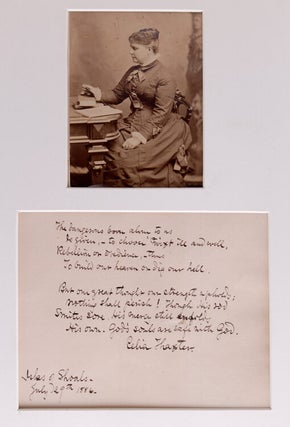 The dangerous boon alone to us
Is given, – to choose 'twixt ill and well,
Rebellion or obedience, – thus
To build our heaven or dig our hell.
But one great thought our strength upholds:
Nothing shall perish! Though his rod
Smites sore, His mercy still enfolds
His own. God's souls are safe with God.
Celia Thaxter.
Isles of Shoals.
July 29th 1886.